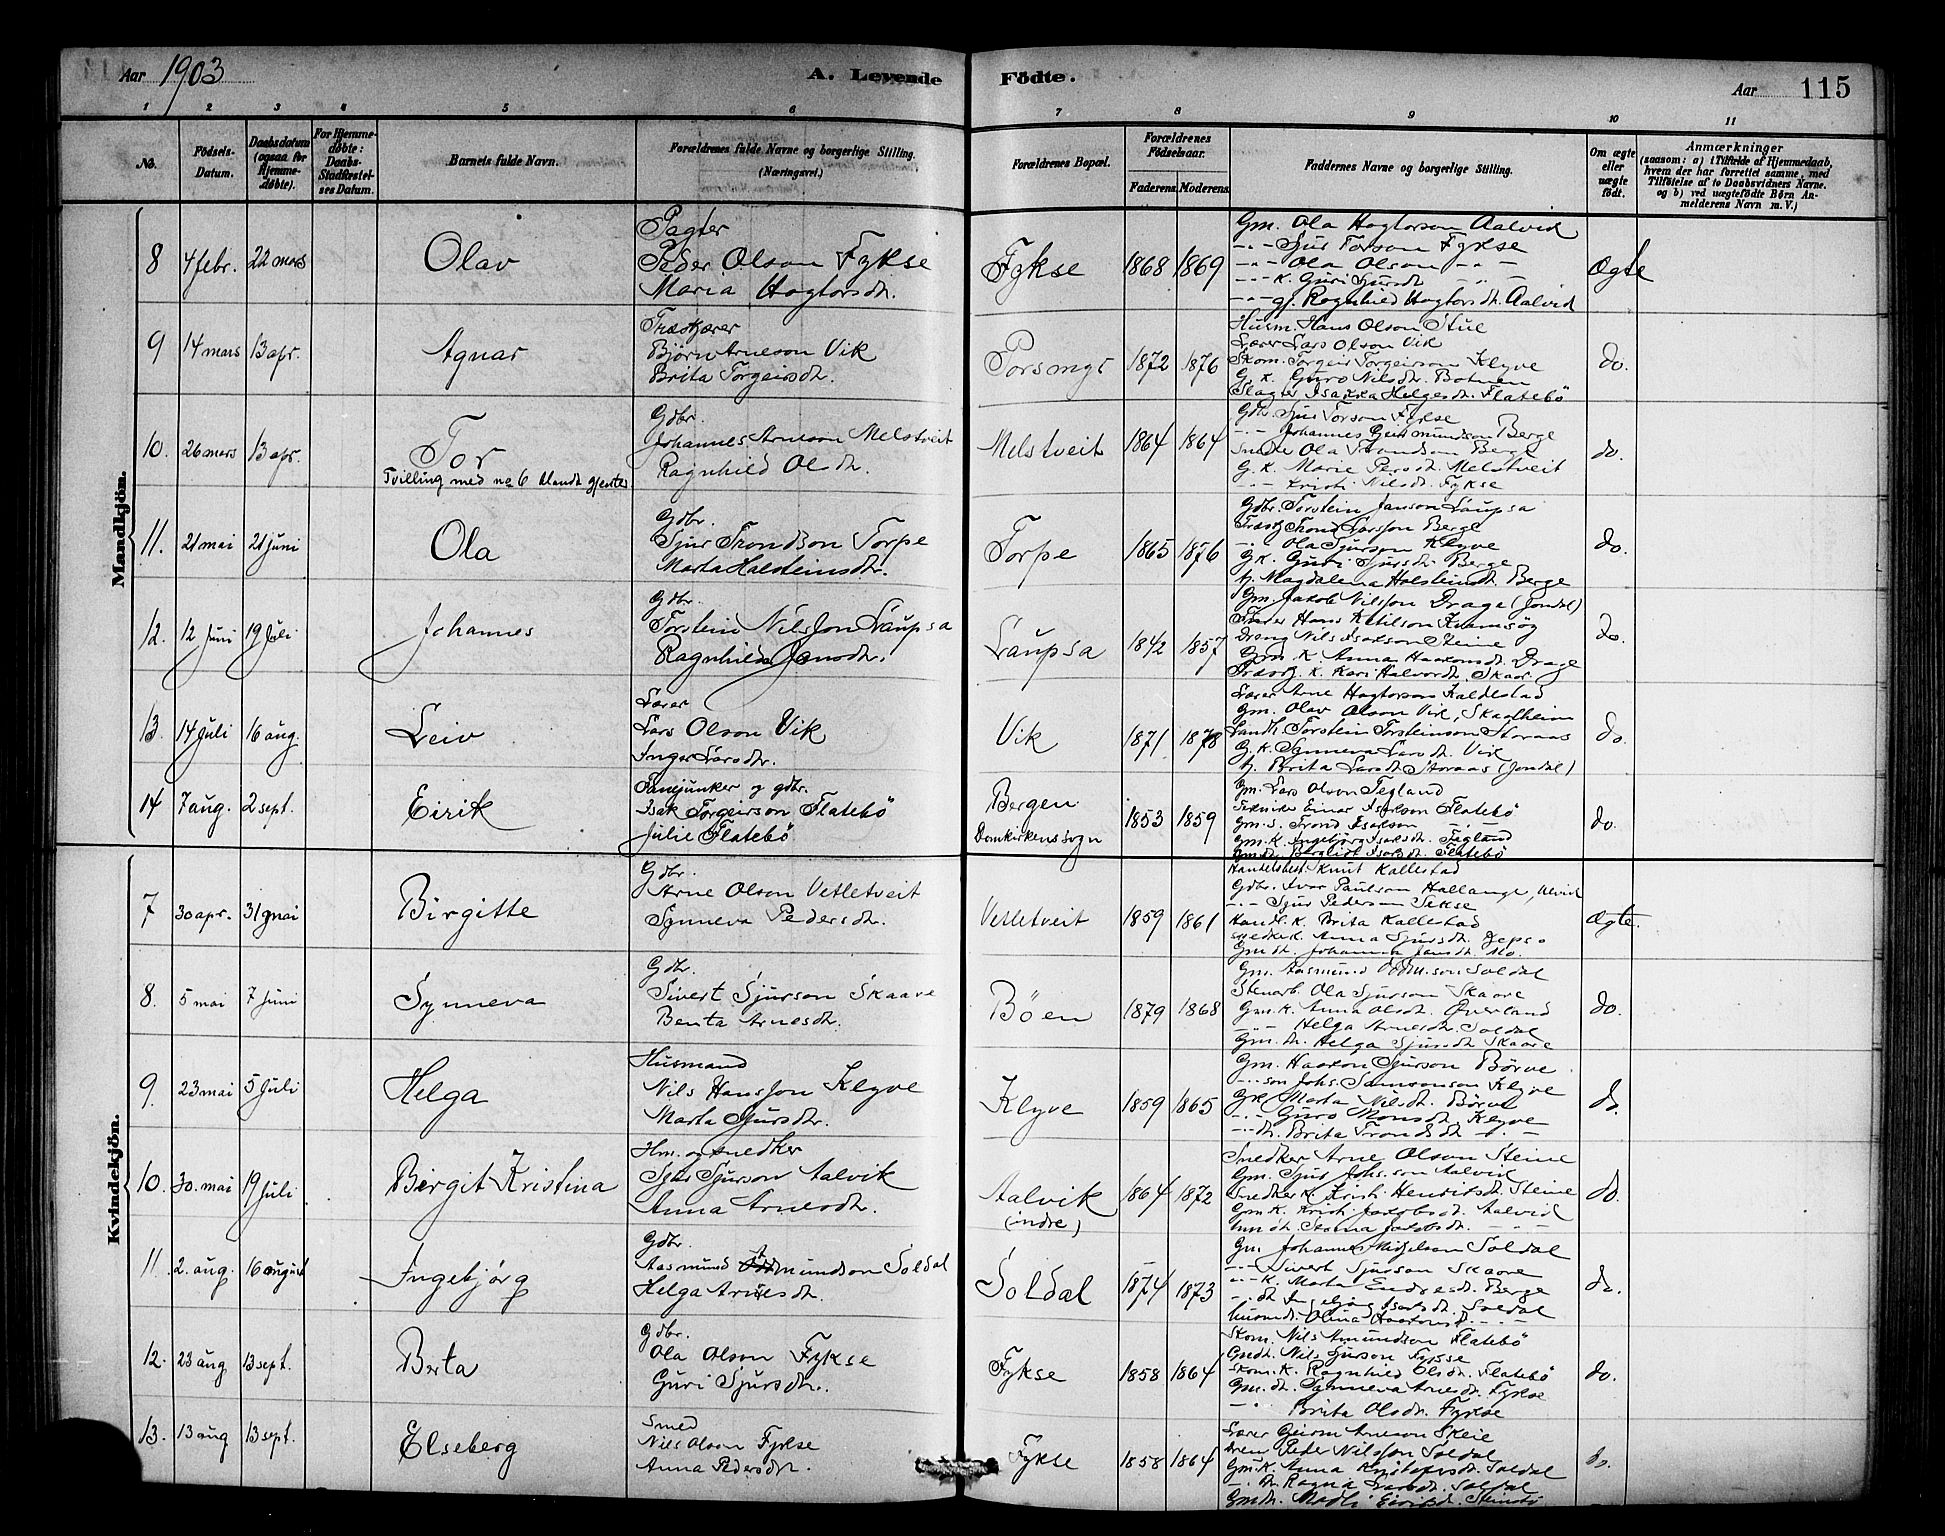 Aar 1903
A. Levende Födte.
Aar 115
1 2 3 4 5 6 7 8 9 10 11
No.
Födsels-Datum.
Daabsdatum (ogsaa for Hjemme-døbte).
For Hjemme-døbte: Daabs-Stadfæstel-ses Datum.
Barnets fulde Navn.
Forældrenes fulde Navne og borgerlige Stilling. (Næringsvei.)
Forældrenes Bopæl.
Forældrenes Födselsaar.
Faderens. Moderens.
Faddernes Navne og borgerlige Stilling.
Om ægte eller uægte født.
Anmærkninger
(saasom: a) i Tilfælde af Hjemmedaab, hvem der har forrettet samme, med Tilføielse af to Daabsvidners Navne. og b) ved uægtefødte Børn An-melderens Navn m. V.)
Mandkjön.
8 4 febr. 22 mars Olav
Pagter
Peder Olson Fykse
Maria Hagtorsdtr.
Fykse 1868 1869
Gm. Ola Hagtorson Aalvid
-"- Sjur Torson Fykse
-"- Ola Olson -"-
-"- K. Guri Sjursdt. "
-"- gj. Ragnhild Hagtorsdt. Aalvid
ægte
9 14 mars 13 apr. Agnar
Træskjærer
Björn Arneson Vik
Brita Torgeirsdtr.
Porsmyr 1872 1876
Husm. Hans Olson Stue
Lærer Lars Olson Vik
Skom. Torgeir Torgeirson Klyve
G. K. Guro Nilsdtr. Botnen
Slagter Isakka Helgesdt. Flatebö
do.
10. 26 mars 13 apr. Tor
Tvilling med no 6 blandt gjenter
Gdbr.
Johannes Arneson Melstveit
Ragnhild Olsdtr.
Melstveit 1864 1864
Gdbr. Sjur Torson Fykse
-"- Johannes Geirmundson Berge
Ola Trondson Berge
G. K. Marie Persdt. Melstveit
-"- Kristi Nilsdt. Fykse
do.
11. 21 mai 21 juni Ola
Gdbr.
Sjur Trondson Torpe
Marta Halsteinsdtr.
Torpe 1865 1876
Gdbr. Torstein Janson Laupsa
Træskj. Trond Larsson Berge
-"- Ola Sjurson Klyve
G.K. Guri Sjursdt. Berge
Magdalena Holsteinsdt. Berge
do.
12. 12 juni 19 juli Johannes
Gdbr.
Torstein Nilsson Laupsa
Ragnhild Jansdtr.
Laupsa 1842 1857
Gm. Jakob Nilsson Drage (Jondal)
Hans Ketilson Kvamsög
Dreng Nils Isakson Steine
Gm. K. Anna Haakonsdt. Drage
K. Kari Halvordt. Skaar
do.
13. 14 juli 16 aug. Leiv
Lærer
Lars Olson Vik
Inger Larsdtr.
Vik 1871 1878
Lærer Arne Hagtorson Kaldestad
Gm. Olav Olson Vik, Skaalheim
Landh. Torstein Torsteinson Storaas
G. K. Synneva Larsdt. Vik
Brita Larsdt. Storaas (Jondal)
do.
14 7 aug. 2 sept. Eirik
Fanejunker og gdbr.
Isak Torgeirson Flatebö
Julie Flatebö
Bergen
Domkirkens sogn
1853 1859
Gm. Lars Olson Tegland
Tekniker Einar Isakson Flatebö
Gm. S. Trond Isakson -"-
Gm. K. Ingebjörg Isaksdt. Tegland
Gm. dt. Bergliot Isaksdt. Flatebö
do.
Kvindekjön.
7 30 apr. 31 mai Birgitte
Gdbr.
Arne Olson Vetletveit
Synneva Pedersdtr.
Vetletveit 1859 1861
Handelsbest. Knut Kallestad
Gdbr. Ivar Paulson Hallanger, Ulvik
-"- Sjur Pederson Sekse
Handl. K. Brita Kallestad
Snedker K. Anna Sjursdt.
Gm. dt. Johanna Jansdt. Mo.
ægte.
8. 5 mai 7 juni Synneva
Gdbr.
Sivert Sjurson Skaare
Benta Arnesdtr.
Böen 1879 1868
Gm. Aasmund Oddm.son Soldal
Stenarb. Ola Sjurson Skaare
Gm. K. Anna Olsdt. Øverland
-"- Helga Arnesdt. Soldal
Gm. dt. Helga Sjursdt. Skaare
do.
9. 23 mai 5 juli Helga
Husmand
Nils Hansson Klyve
Marta Sjursdtr.
Klyve 1859 1865
Gm. Haakon Sjurson Börve
-"- son Johs. Samsonson Klyve
G.K. Marta Nilsdt. Börve
-"- Guro Monsdt. Klyve
-"- dt. Brita Trondsdt. -"-
do.
10. 30. mai 19 juli Birgit Kristina
Hm. og snedker
Sjur Sjurson Aalvik
Anna Arnesdtr.
Aalvik
(indre)
1864 1872
Snedker Arne Olson Steine
Gm. Sjur Johs.son Aalvid
Snedker K. Kristi Henriksdt. Steine
Gm. K. Kristi Jakobsdt. Aalvid
dt. Jakobsdt. -"-
do.
11. 2. aug. 16 august Ingebjörg
Gdbr.
Aasmund mundson Soldal
Helga Arnesdt.
Soldal 1874 1873
Gm. Johannes Mikjelson Soldal
-"- Sivert Sjurson Skaare
-"- K. Marta Endresdt. Berge
-"- dt. Ingebjörg Isaksdt. Soldal
Olina Haakonsdt. -"-
do.
12. 23 aug 13 sept. Berta
Gdbr.
Ola Olson Fykse
Guri Sjursdtr.
Fykse 1858 1864
Skom. Nils Amundson Flatebö
Nils Sjurson Fykse
Skom. K. Ragnhild Olsdt. Flatebö
Gm. dt. Synneva Arnesdt. Fykse
-"- Brita Olsdt. Fykse
do.
13. 13 aug 13 sept. Elseberg
Smed
Nils Olson Fykse
Anna Pedersdtr.
Fykse 1858 1864
Lærer Geirm. Arneson Skeie
Peder Nilsson Soldal
Gm. K. Anna Kristofersdt. Soldal
-"- Dt. Ragna Larsdt. Soldal
Gm. dt. Eiriksdt. Steinstö
do.